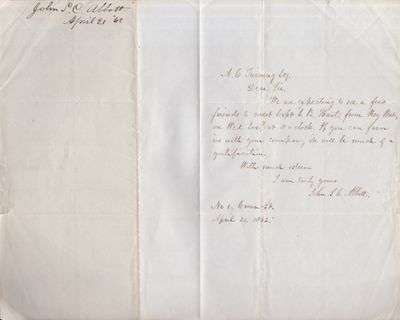 John S. C. Abbott
April 21 '62
A. C. Twining Esq.
Dear Sir.
We are expecting to see a few
friends to meet Capt. L. B. Hunt, from Key West,
on Wed. Eve, at 8 o'clock. If you can favor
us with your company, it will be much of a
gratification.
With much esteem
I am truly yours
John S. C. Abbott.
No 1, Crown St.
April 21, 1862.